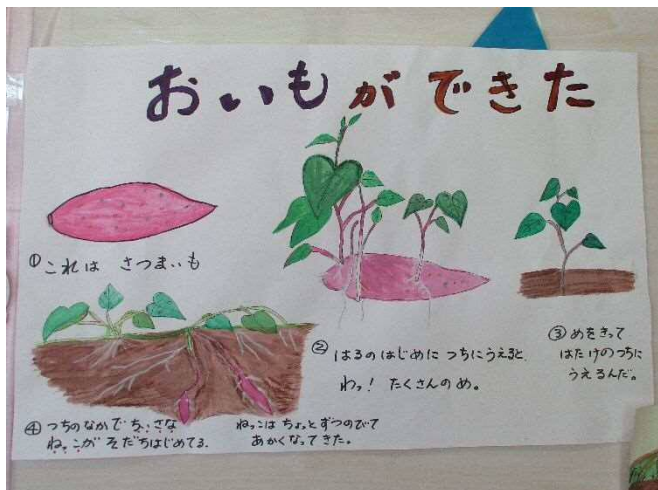 おいもができた
①これは さつまいも
②はるのはじめに つちにうえると
わっ! たくさんのめ。
③めをきって
はたけのつちに
うえるんだ。
④つちのなかで ちいさな
ねっこが そだちはじめてる。
ねっこは ちょっとずつのびて
あかくなってきた。